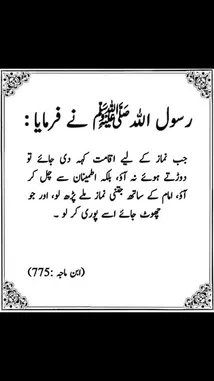 رسول اللہ ﷺ نے فرمایا :
جب نماز کے لیے اقامت کہہ دی جائے تو
دوڑتے ہوئے نہ آؤ، بلکہ اطمینان سے چل کر
آؤ، امام کے ساتھ جتنی نماز ملے پڑھ لو، اور جو
چھوٹ جائے اسے پوری کر لو ۔
(ابن ماجہ :775)